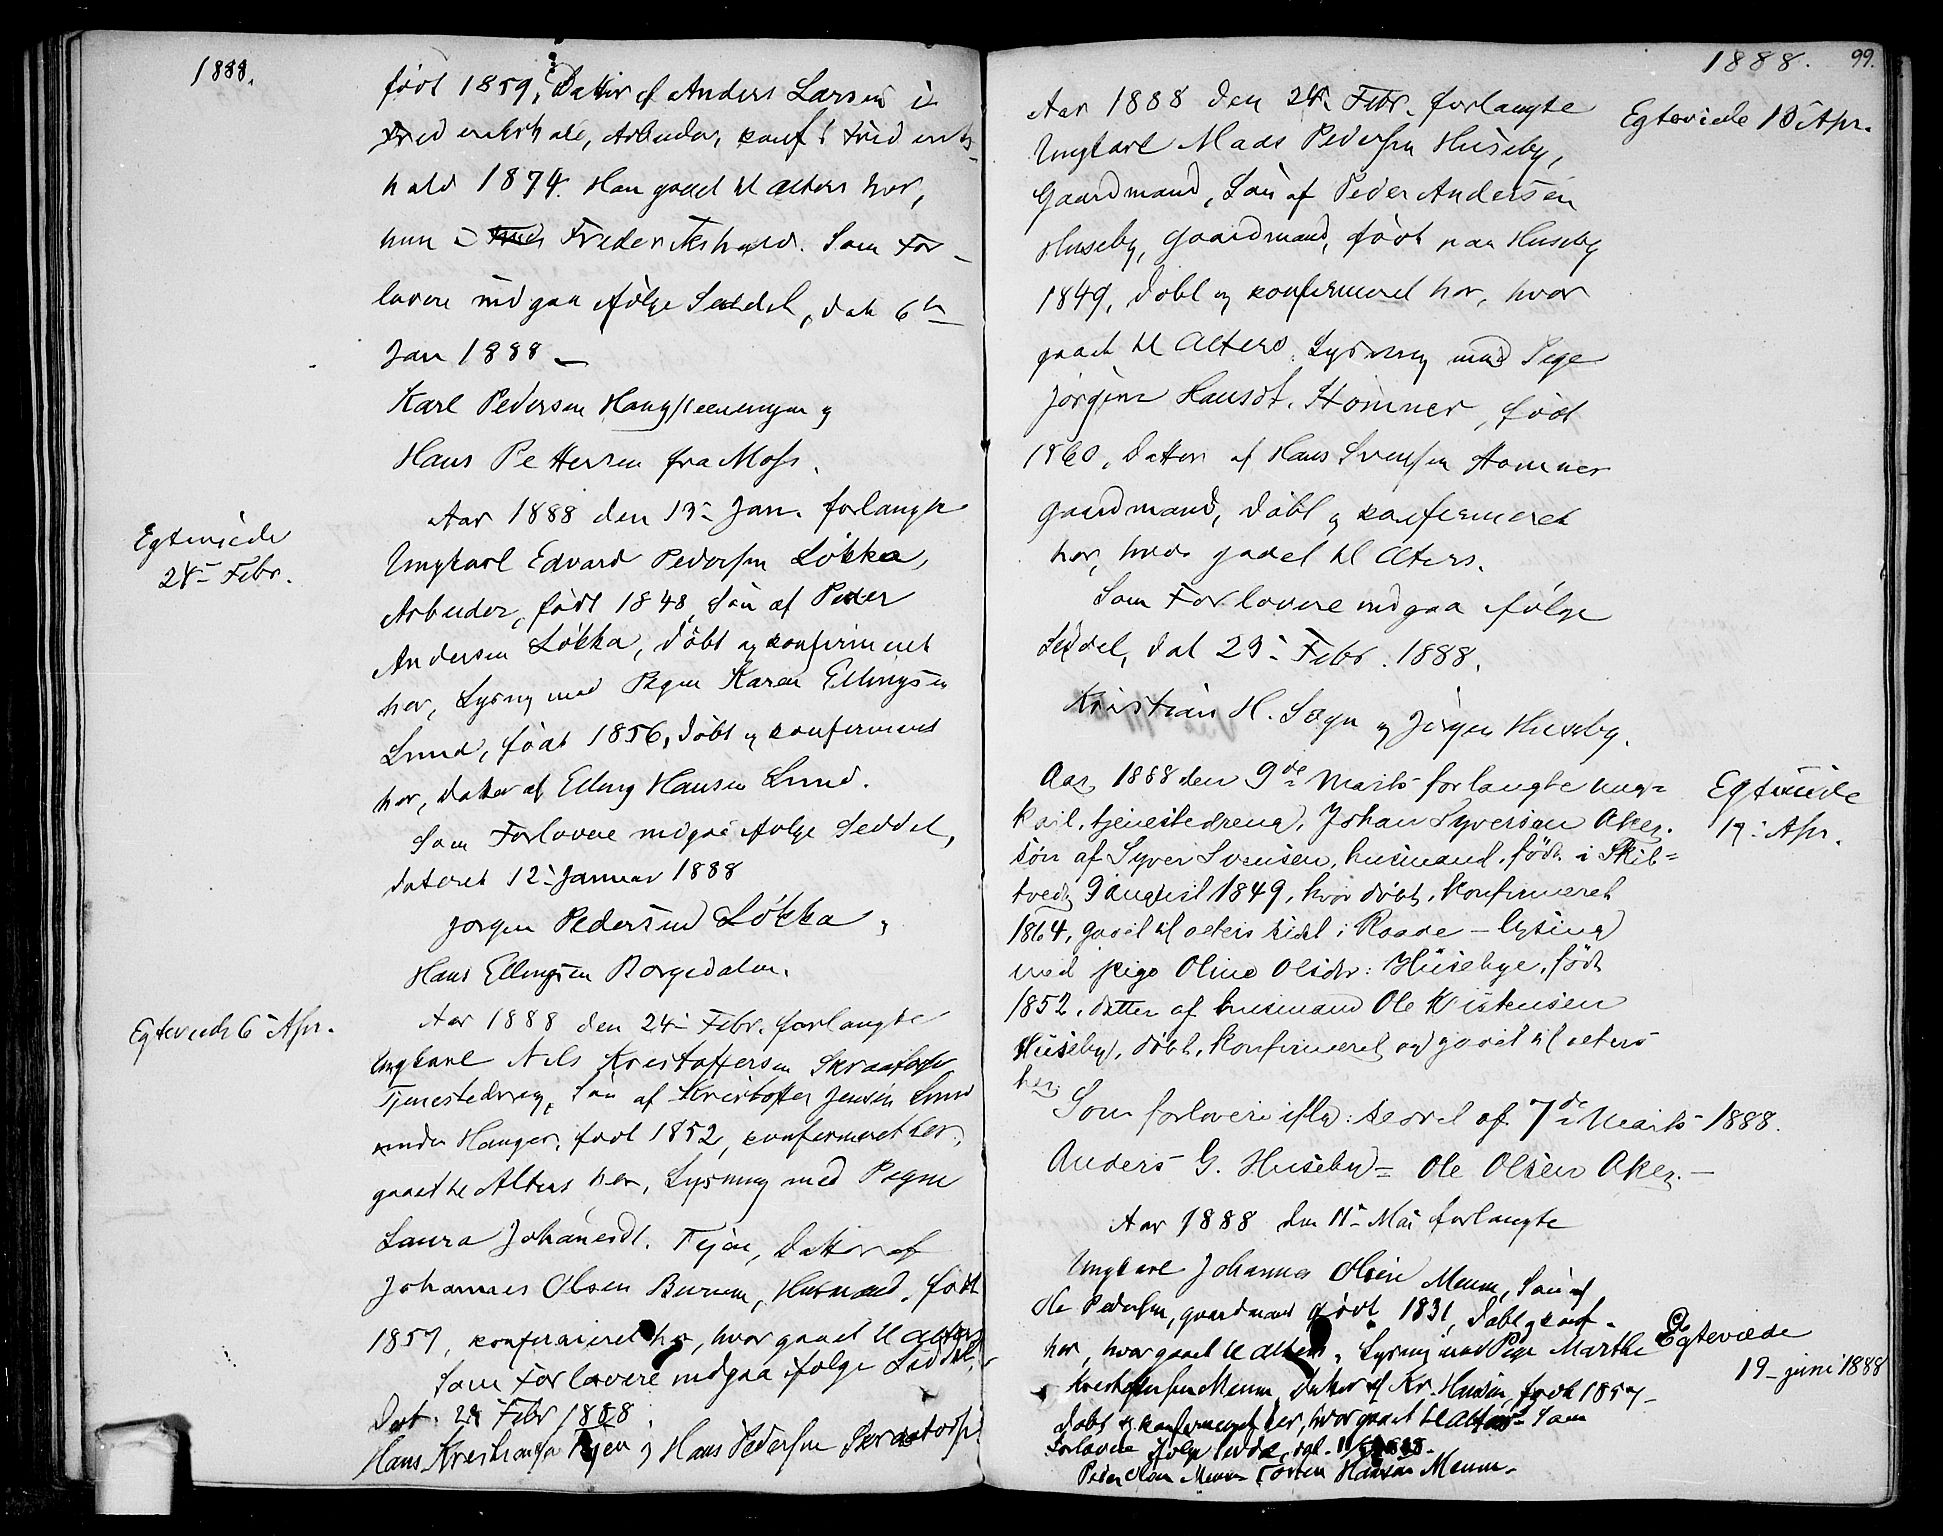 1888.
født 1859, Datter af Anders Larsen i
Frederikshald, Arbeider, konf i Frederiks-
hald 1874. Han gaaet til Alters her,
hun i Frederikshald. Som For-
lovere indgaa ifølge Seddel, dat 6te
Jan 1888 —
Karl Pedersen Haugsteenengen og
Hans Pettersen fra Moss.
Egteviede
24de Febr.
Aar 1888 den 13de Jan. forlangte
Ungkarl Edvard Pedersen Løkka,
Arbeider, født 1848, Søn af Peder
Andersen Løkka, døbt og konfirmeret
her, Lysning med Pigen Karen Ellingsen
Lund, født 1856, døbt og konfirmeret
her, Datter af Elling Hansen Lund.
Som Forlovere indgaa ifølge Seddel,
dateret 12te Januar 1888
Jørgen Pedersen Løkka,
Hans Ellingsen Borgedalen.
Egteviede 6te Apr.
Aar 1888 den 24de Febr. forlangte
Ungkarl Nils Kristoffersen Skraatorp
Tjenestedreng, Søn af Kristoffer Jensen Lund
under Hanger, født 1852, konfirmeret her,
gaaet til Alters her, Lysning med Pigen
Laura Johanesdt. Tejen, Datter af
Johannes Olsen Burum, Husmand, født
1857, konfirmeret her, hvor gaaet til Alters
Som Forlovere indgaa ifølge Seddel,
Dat. 24 Febr 1888.
Hans Kristiansen Tejen og Hans Pedersen Skraatorp.
1888. 99.
Aar 1888 den 24de Febr. forlangte
Ungkarl Mads Pedersen Huseby,
Gaardmand, Søn af Peder Andersen
Huseby, Gaardmand, født paa Huseby
1849, døbt og konfirmeret her, hvor
gaaet til Alters. Lysning med Pige
Jørgine Hansdt. Homner, født
1860, Datter af Hans Svensen Homner
Gaardmand, døbt og konfirmeret
her, hvor gaaet til Alters.
Som Forlovere indgaa ifølge
Seddel, dat 23de Febr. 1888.
Kristian H. Sogn og Jørgen Huseby.
Egteviede 13de Apr.
Aar 1888 den 9de Marts forlangte ung=
karl, tjenestedreng, Johan Syversen Aker,
søn af Syver Svensen, husmand, født i Skib=
tvedt 9 august 1849, hvor døbt, konfirmeret
1864, gaaet til alters sidst i Raade – lysning
med pige Oline Olsdtr: Husebye, født
1852, datter af husmand Ole Kristensen
Huseby, døbt, konfirmeret og gaaet til alters
her.
Egteviede
19de Apr.
Som forlovere iflg: seddel af 7de Marts 1888.
Anders G. Huseby = Ole Olsen Aker. —
Aar 1888 den 11te Mai forlangte
Ungkarl Johannes Olsen Menne, Søn af
Ole Pedersen, gaardmand født 1831, døbt og konf.
her, hvor gaaet til Alters, Lysning med Pige Marthe
Kristoffersen Menne, Datter af Kr. Hansen, født 1857
døbt og konfirmeret her, hvor gaaet til Alters Som
Forlovere ifølge Seddel, dat. 11/5 1888.
Peder Olsen Menne Torsten Hansen Menne.
Egteviede
19 – juni 1888